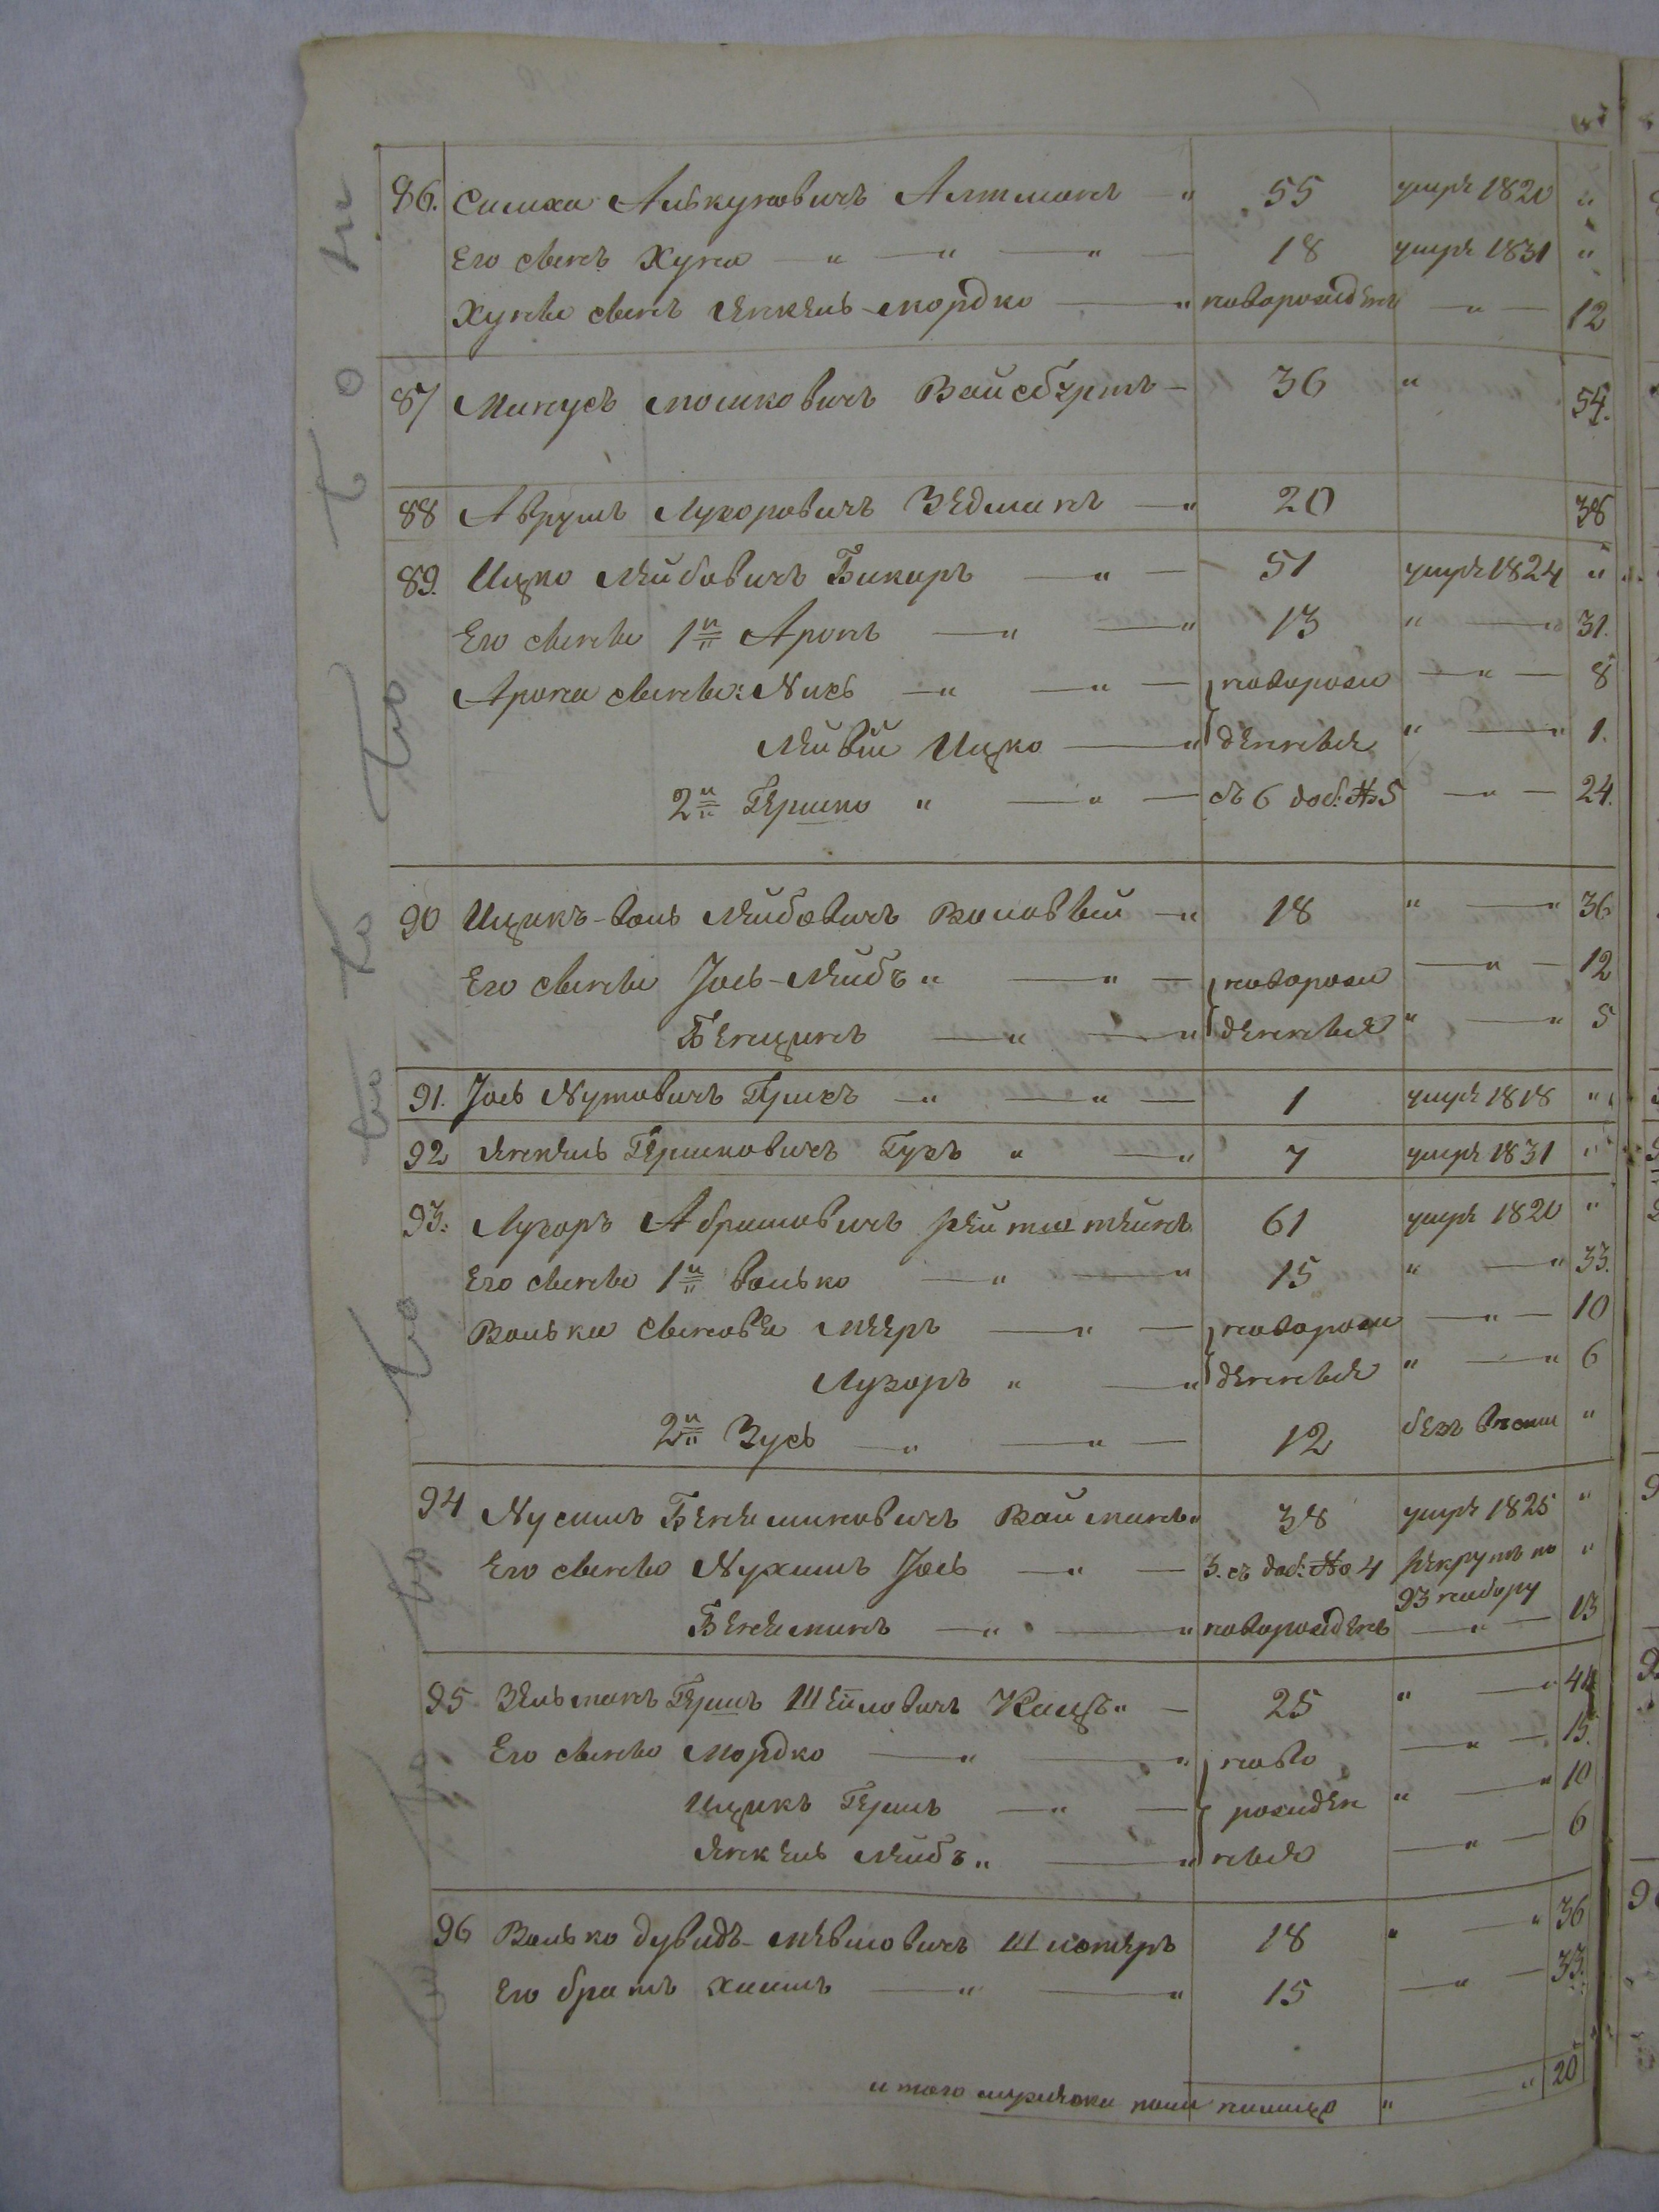 86. Симха Анькуновичъ Алтманъ — „ 55 умеръ 1820 „
Его сынъ Хуна — „ — „ — „ — 18 умеръ 1831 „
Хуны сынъ Янкель-Мордко — „ новорожденъ — „ — 12
87 Манусъ Мошковичъ Вайсбуртъ — 36 „ 54.
88 Аврумъ Лузоровичъ Зедманъ — „ 20 38
89. Ицко Лейбовичъ Бикаръ — „ — 51 умеръ 1824 „
Его сыны 1й Аронъ — „ — „ 13 „ — „ 31.
Арона сыны: Нихъ — „ — „ — новорож — „ — 8
Лейвiи Ицко — „ денные „ — „ 1.
2й Гершко „ — „ — съ 6 доб: № 5 — „ — 24.
90 Ицикъ-Воль Лейбовичъ Воловый — „ 18 „ — „ 36
Его сыны Іось-Лейбъ „ — „ — новорож — „ — 12
Бенціинъ — „ — „ денные „ — „ 5
91. Іось Нутовичъ — „ — „ — 1 умеръ 1818 „
92 Янкель Гершковичъ Гухъ „ — „ 7 умеръ 1831 „
93. Лузоръ Абрамовичъ 61 умеръ 1820 „
Его сыны 1й Волько — „ — „ 15 „ — „ 33.
Волька сыновья Мееръ — „ — новорож — „ — 10
Лузоръ „ — „ денные „ — „ 6
2й Зусь — „ — „ — 12 безъ вѣсти „
94 Нусимъ Беньяминовичъ Вайманъ „ 38 умеръ 1825 „
Его сыны Нухимъ Іось — „ — 3. съ доб: № 4 рекрутъ по „
93 набору
Беньяминъ — „ — „ новорожденъ — „ — 13
95 Зельманъ Гершъ Шейловичъ Кацъ „ — 25 „ — „ 44
Его сыны Мордко — „ — „ ново — „ — 15.
Ицикъ Гершъ — „ — рожден „ — „ 10
Янкель Лейбъ „ — „ ные — „ — 6
96 Волько Дувидъ-Мевшовичъ 18 „ — „ 36
Его братъ Хаимъ — „ — „ 15 — „ — 33.
итого мужеска пола налицо „ „ 20